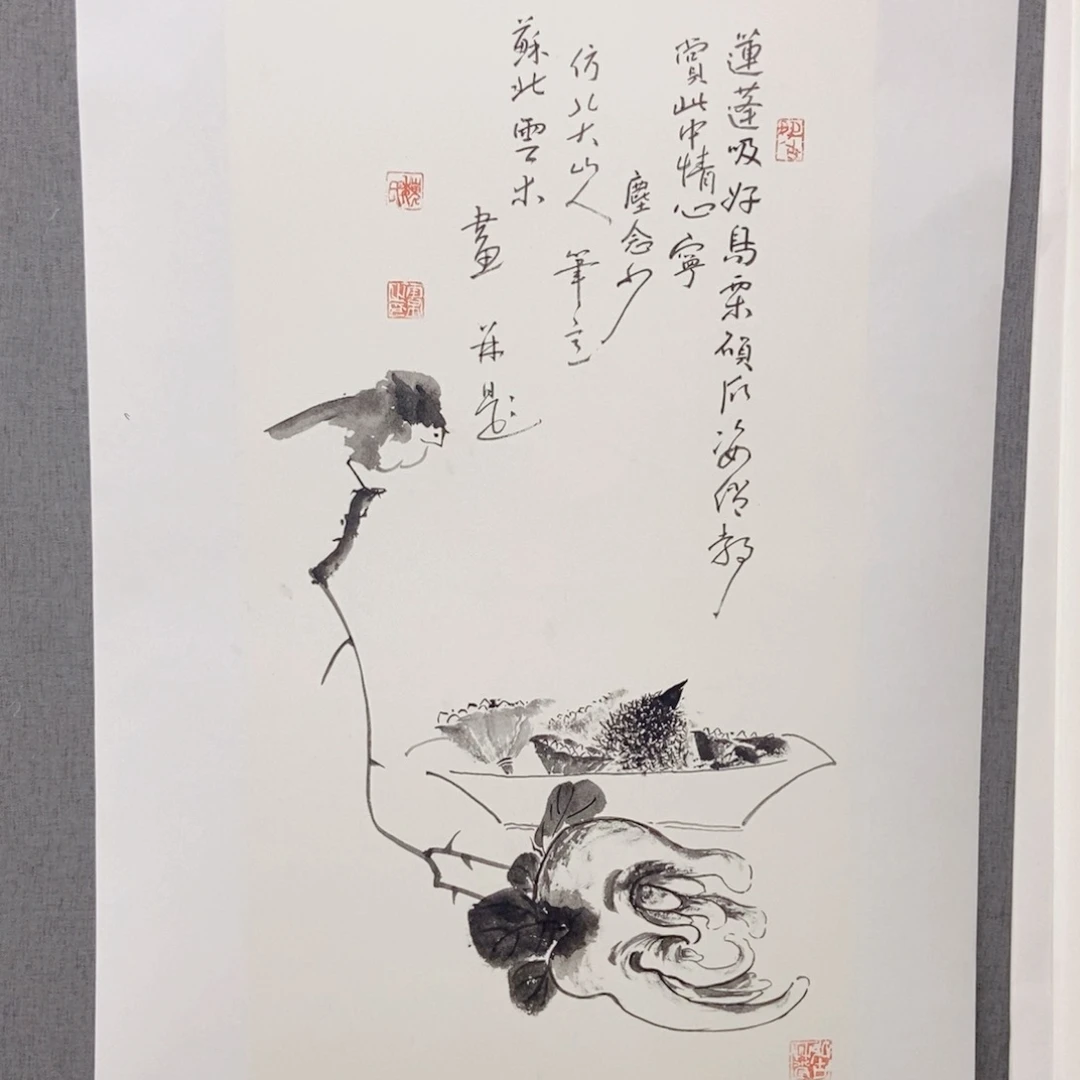 蓮蓬吸好鳥栗碩瓜姿俏
賞此中情心寧
塵念少
仿八大山人筆意
蘇北雲木
畫并題